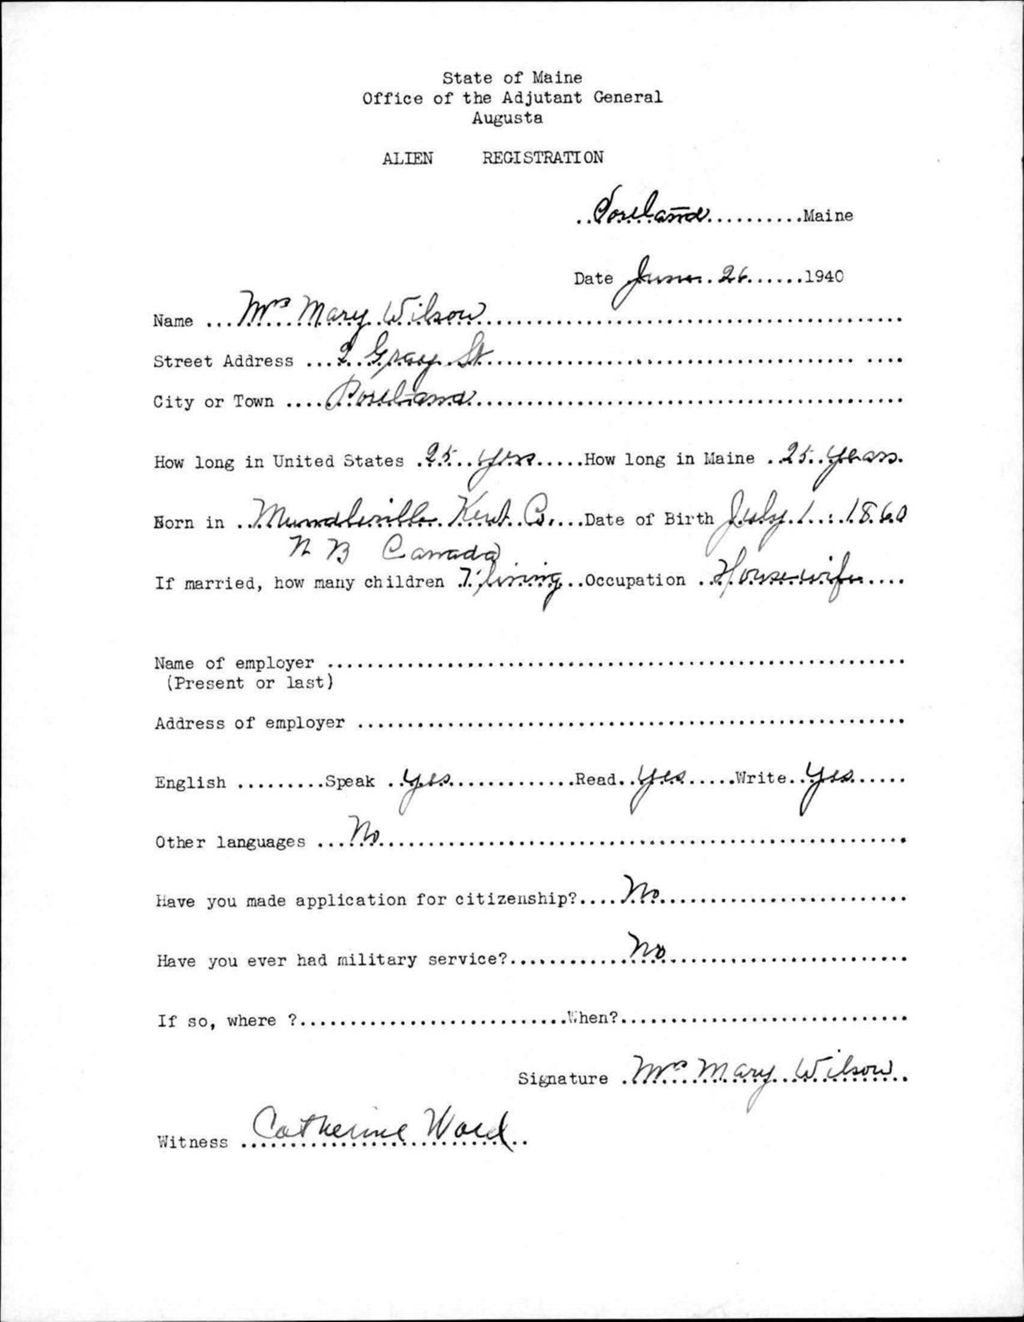 State of Maine
Office of the Adjutant General
Augusta
ALIEN REGISTRATION
..Portland..........Maine
Date June 26......1940
Name ...Mrs Mary Wilson..........
Street Address ...2 Gray St..........
City or Town ....Portland..........
How long in United States .25 yrs.....How long in Maine .25 years.
Born in ..Mundleville Kent Co,...Date of Birth July 1. 1860
N B Canada
If married, how many children .7 living..Occupation ..Housewife....
Name of employer ..........
(Present or last)
Address of employer ..........
English .........Speak ..yes............Read..yes.....Write..yes.....
Other languages ...No..........
Have you made application for citizenship?....No..........
Have you ever had military service?..........No..........
If so, where ?..........When?..........
Signature .Mrs Mary Wilson..
Witness Catherine Ward..